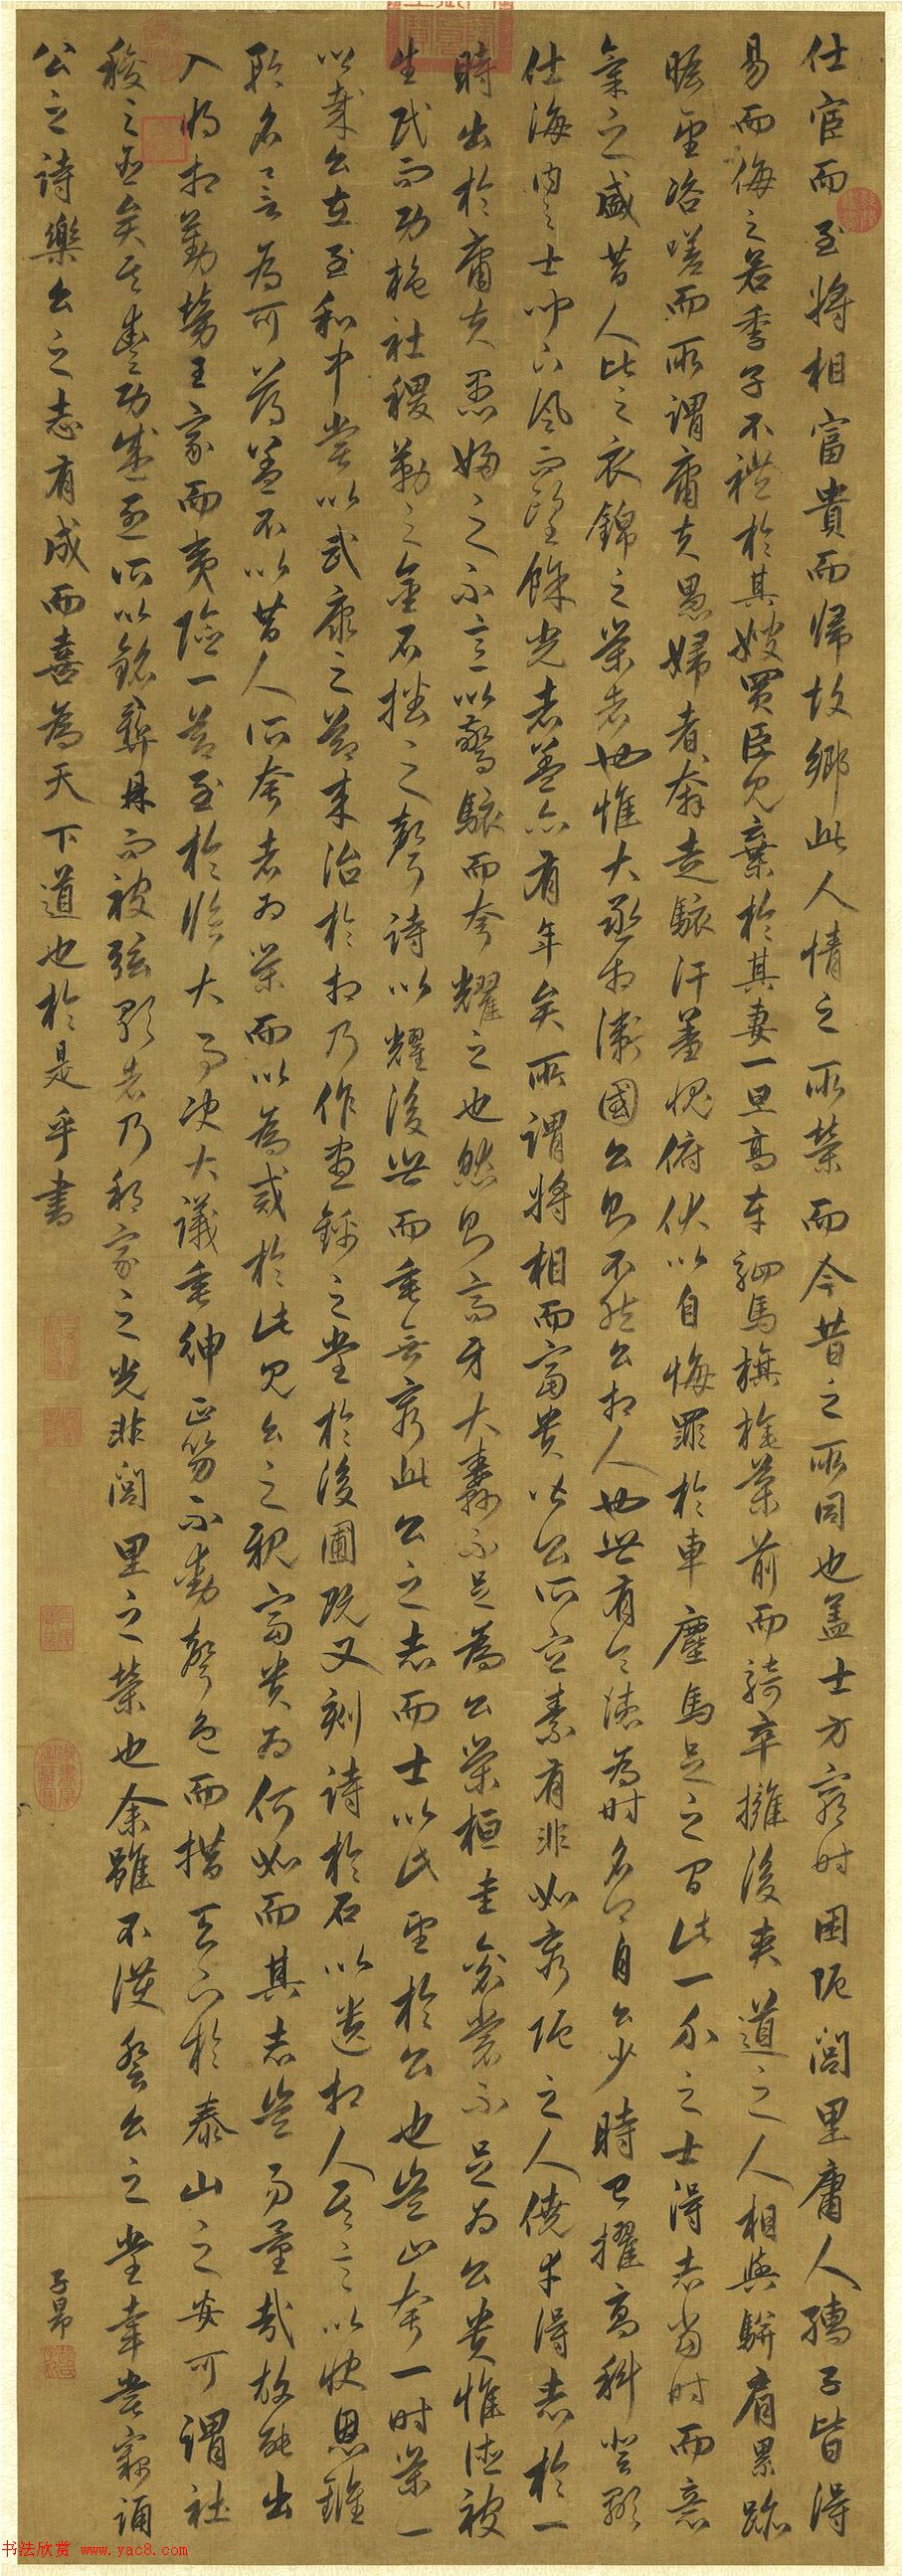 仕宦而至將相富貴而歸故鄉此人情之所榮而今昔之所同也盖士方窮時困阨閭里庸人孺子皆得
易而侮之若季子不禮於其嫂買臣見棄於其妻一旦高車駟馬旗旄導前而騎卒擁後夾道之人相與駢肩累跡
瞻望咨嗟而所謂庸夫愚婦者奔走駭汗羞愧俯伏以自悔罪於車塵馬足之間此一介之士得志當時而意
氣之盛昔人比之衣錦之榮者也惟大丞相衛國公則不然公相人也世有令德為時名卿自公少時已擢高科登顯
仕海內之士聞下風而望餘光者蓋亦有年矣所謂將相而富貴皆公所宜素有非如窮阨之人僥幸得志於一
時出於庸夫愚婦之不意以驚駭而夸耀之也然則高牙大纛不足為公榮桓圭袞裳不足為公貴惟德被
生民而功施社稷勒之金石播之聲詩以耀後世而垂無窮此公之志而士以此望於公也豈止夸一時榮一
鄉哉公在至和中嘗以武康之節來治於相乃作晝錦之堂於後圃既又刻詩於石以遺相人其言以快恩讎
矜名譽為可薄蓋不以昔人所夸者為榮而以為戒於此見公之視富貴為何如而其志豈易量哉故能出
入將相勤勞王家而夷險一節至於臨大事決大議垂紳正笏不動聲色而措天下於泰山之安可謂社
稷之臣矣其豐功盛烈所以銘彝鼎而被弦歌者乃邦家之光非閭里之榮也余雖不獲登公之堂幸嘗竊誦
公之詩樂公之志有成而喜為天下道也於是乎書
子昂
书法欣赏 www.yac8.com